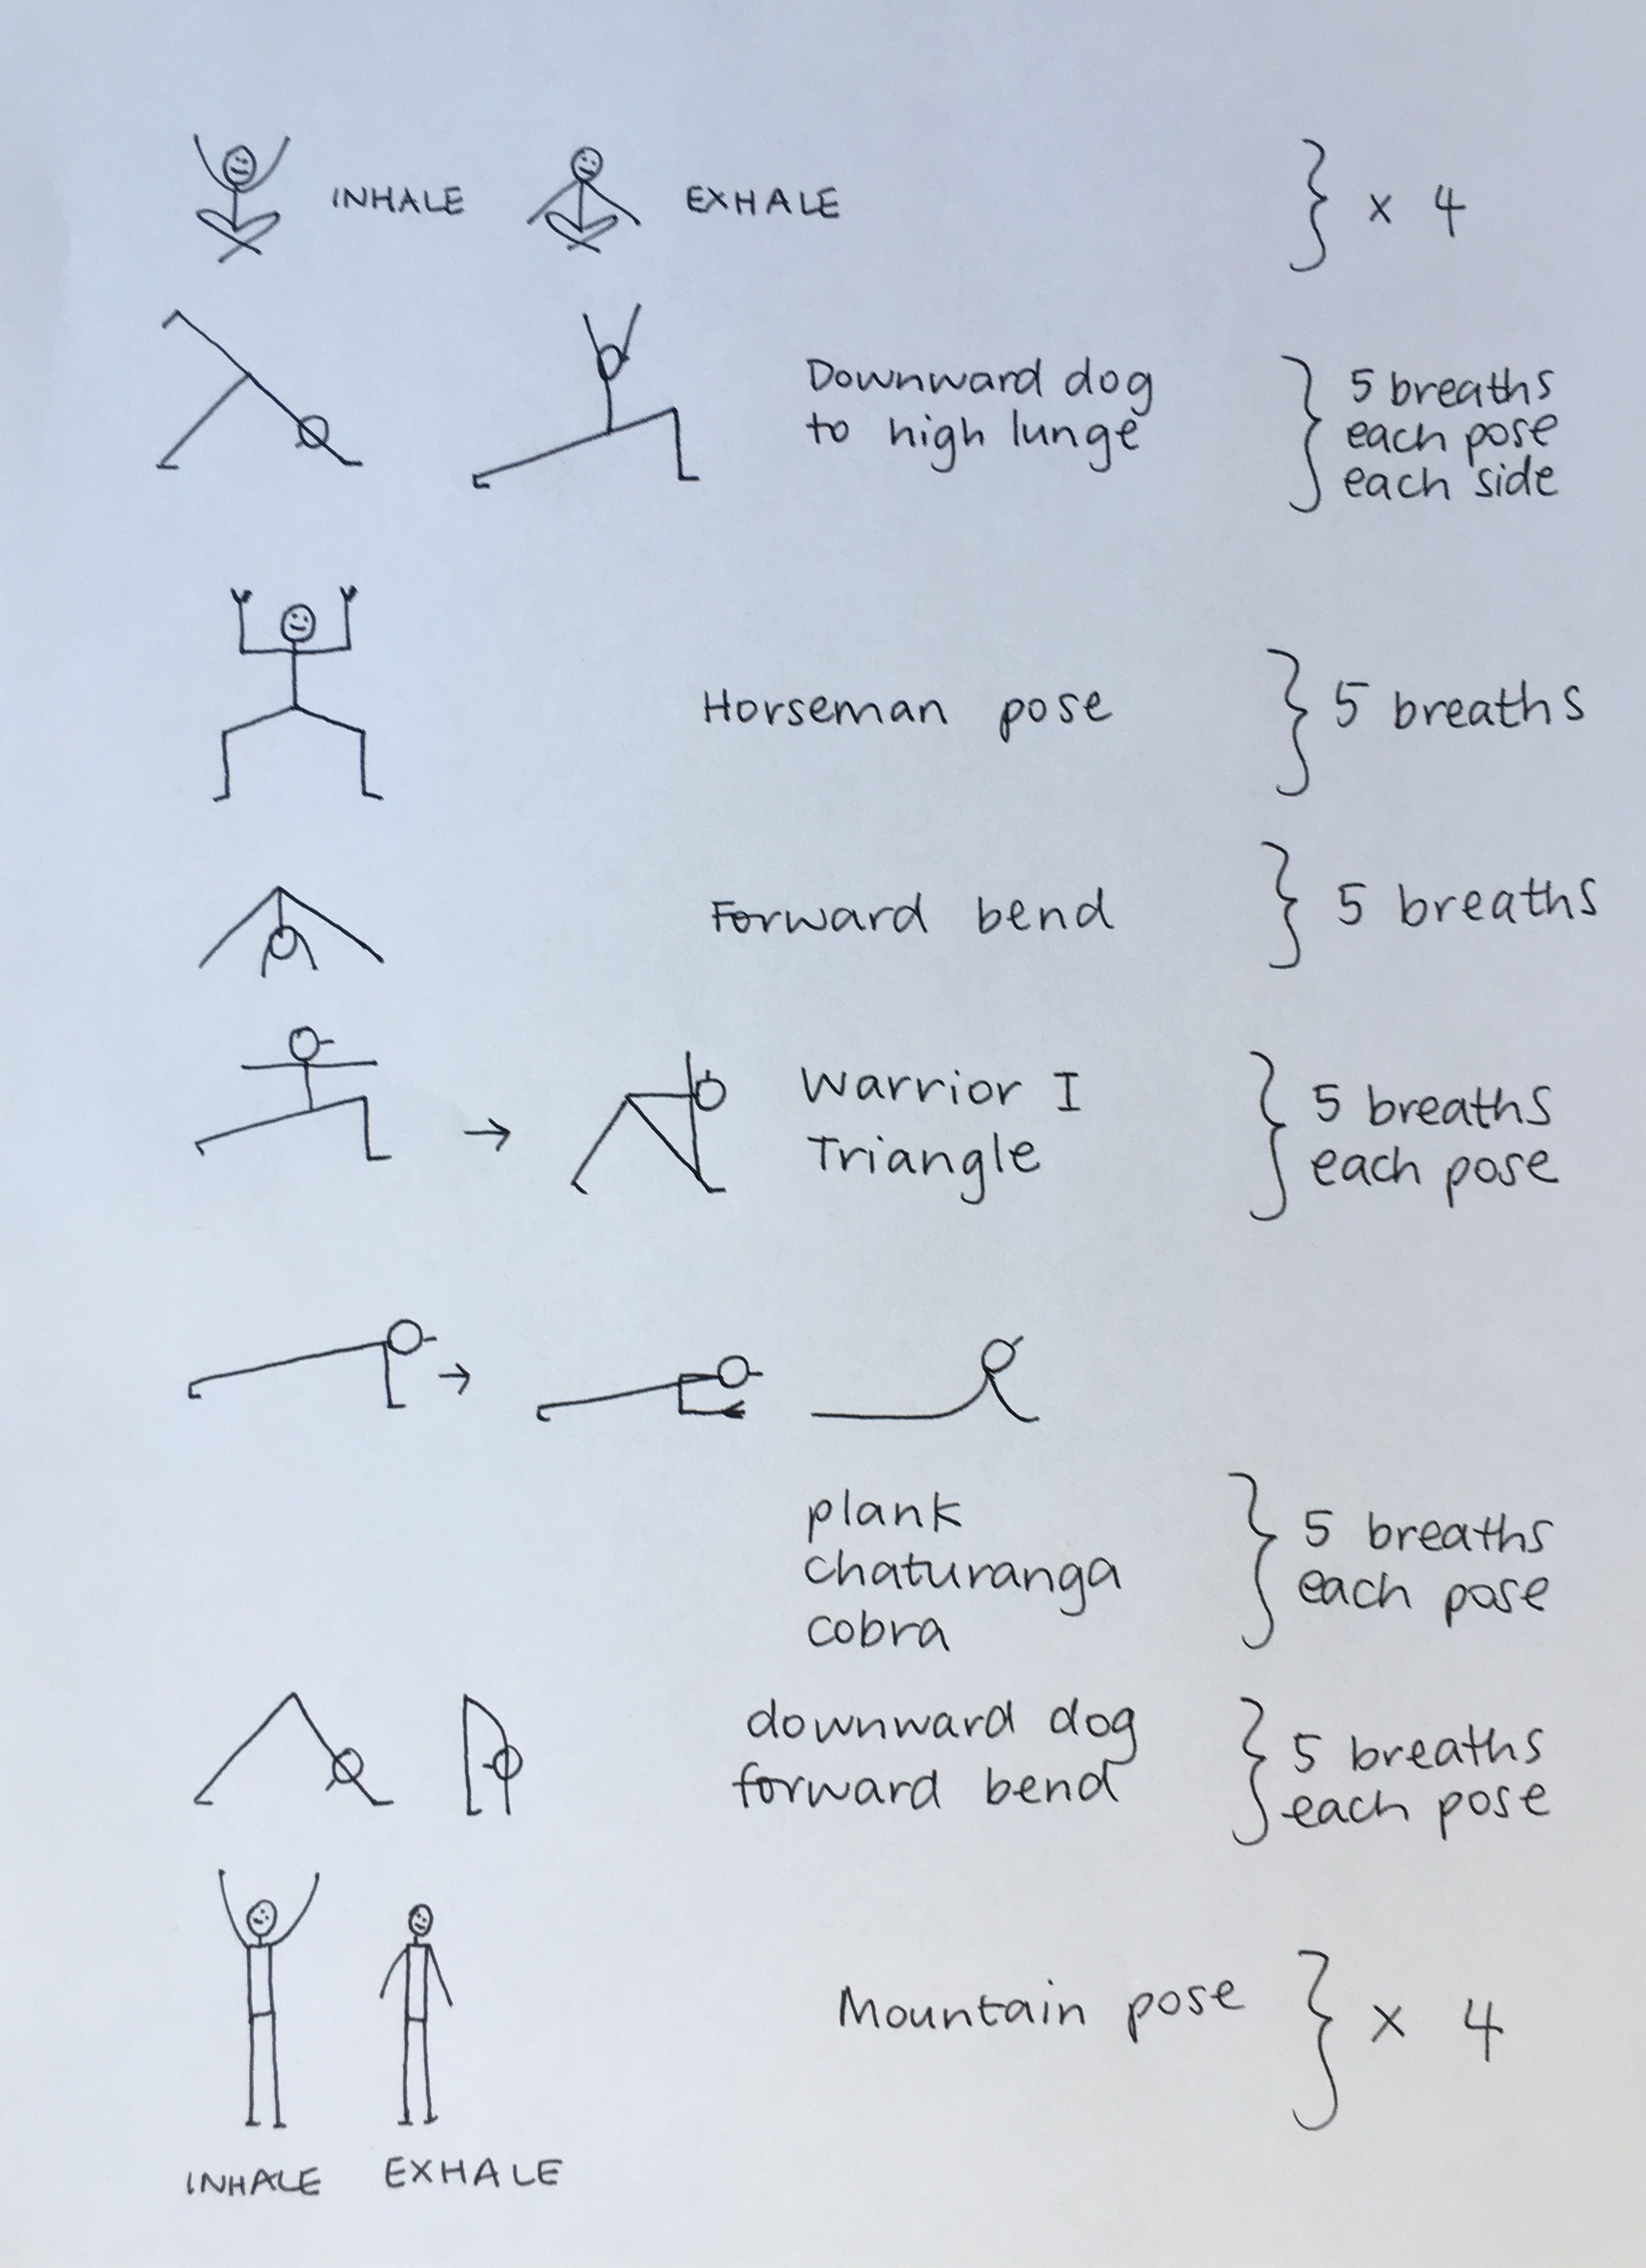 INHALE EXHALE } x 4
Downward dog
to high lunge
} 5 breaths
each pose
each side
Horseman pose } 5 breaths
Forward bend } 5 breaths
→ Warrior I
Triangle
} 5 breaths
each pose
→
plank
chaturanga
cobra
} 5 breaths
each pose
downward dog
forward bend
} 5 breaths
each pose
Mountain pose } x 4
INHALE EXHALE